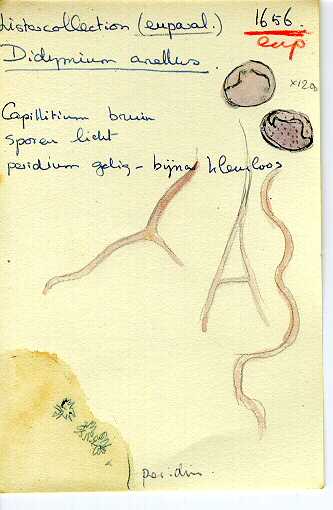 Listercollection (euparal.)
1656
eup
Didymium anellus.
x1200
Capillitium bruin
sporen licht
peridium gelig - bijna kleurloos
peridium